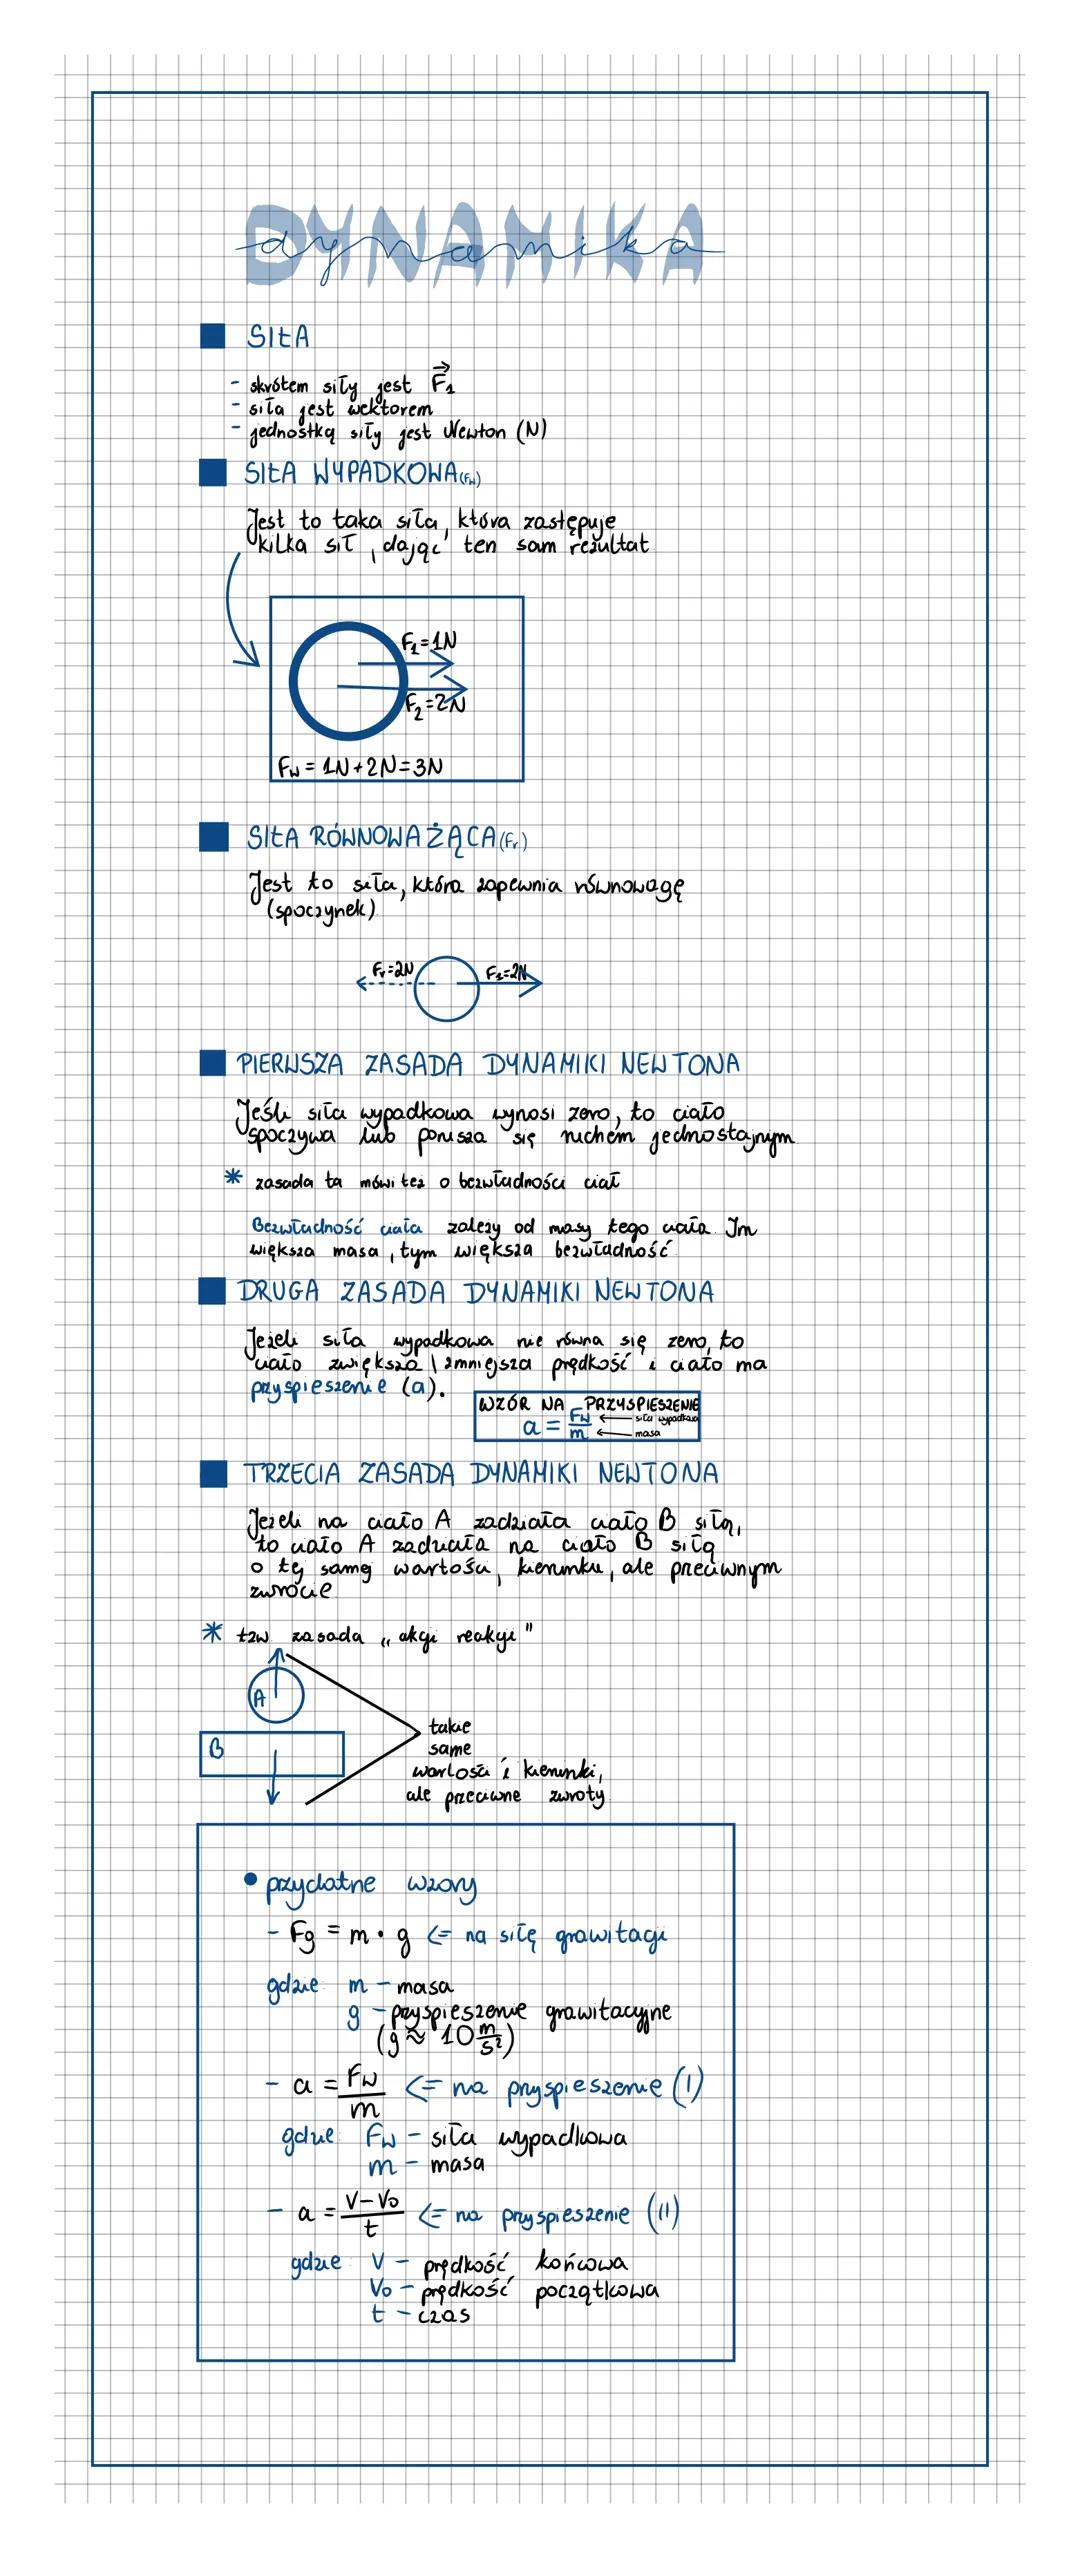 DYNAMIKA
dynamika
SIŁA
- skrótem siły jest F₁
- siła jest wektorem
- jednostką siły jest Newton (N)
SIŁA WYPADKOWA (Fw)
Jest to taka siła, która zastępuje
kilka sił, dając ten sam rezultat
F₁=1N
F₂=2N
Fw = 1N+2N=3N
SIŁA RÓWNOWAŻĄCA (Fr)
Jest to siła, która zapewnia równowagę
(spoczynek)
Fr=2N F₁=2N
PIERWSZA ZASADA DYNAMIKI NEWTONA
Jeśli siła wypadkowa wynosi zero, to ciało
spoczywa lub porusza się ruchem jednostajnym
* zasada ta mówi też o bezwładności ciał
Bezwładność ciała zależy od masy tego ciała Im
większa masa, tym większa bezwładność
DRUGA ZASADA DYNAMIKI NEWTONA
Jeżeli siła wypadkowa nie równa się zero, to
ciało zwiększa \ zmniejsza prędkość i ciało ma
przyspieszenie (a).
WZÓR NA PRZYSPIESZENIE
a = Fw/m ← siła wypadkowa
← masa
TRZECIA ZASADA DYNAMIKI NEWTONA
Jeżeli na ciało A zadziała ciało B siłą,
to ciało A zadziała na ciało B siłą
o tej samej wartości, kierunku, ale przeciwnym
zwrocie
* tzw. zasada „akcji reakcji"
A
B
takie
same
wartości i kierunki,
ale przeciwne zwroty
• przydatne wzory
- Fg = m · g <= na siłę grawitacji
gdzie: m - masa
g - przyspieszenie grawitacyjne
(g ≈ 10 m/s²)
- a = Fw/m <= na przyspieszenie (I)
gdzie: Fw - siła wypadkowa
m - masa
- a = V-V₀/t <= na przyspieszenie (II)
gdzie: V - prędkość końcowa
V₀ - prędkość początkowa
t - czas